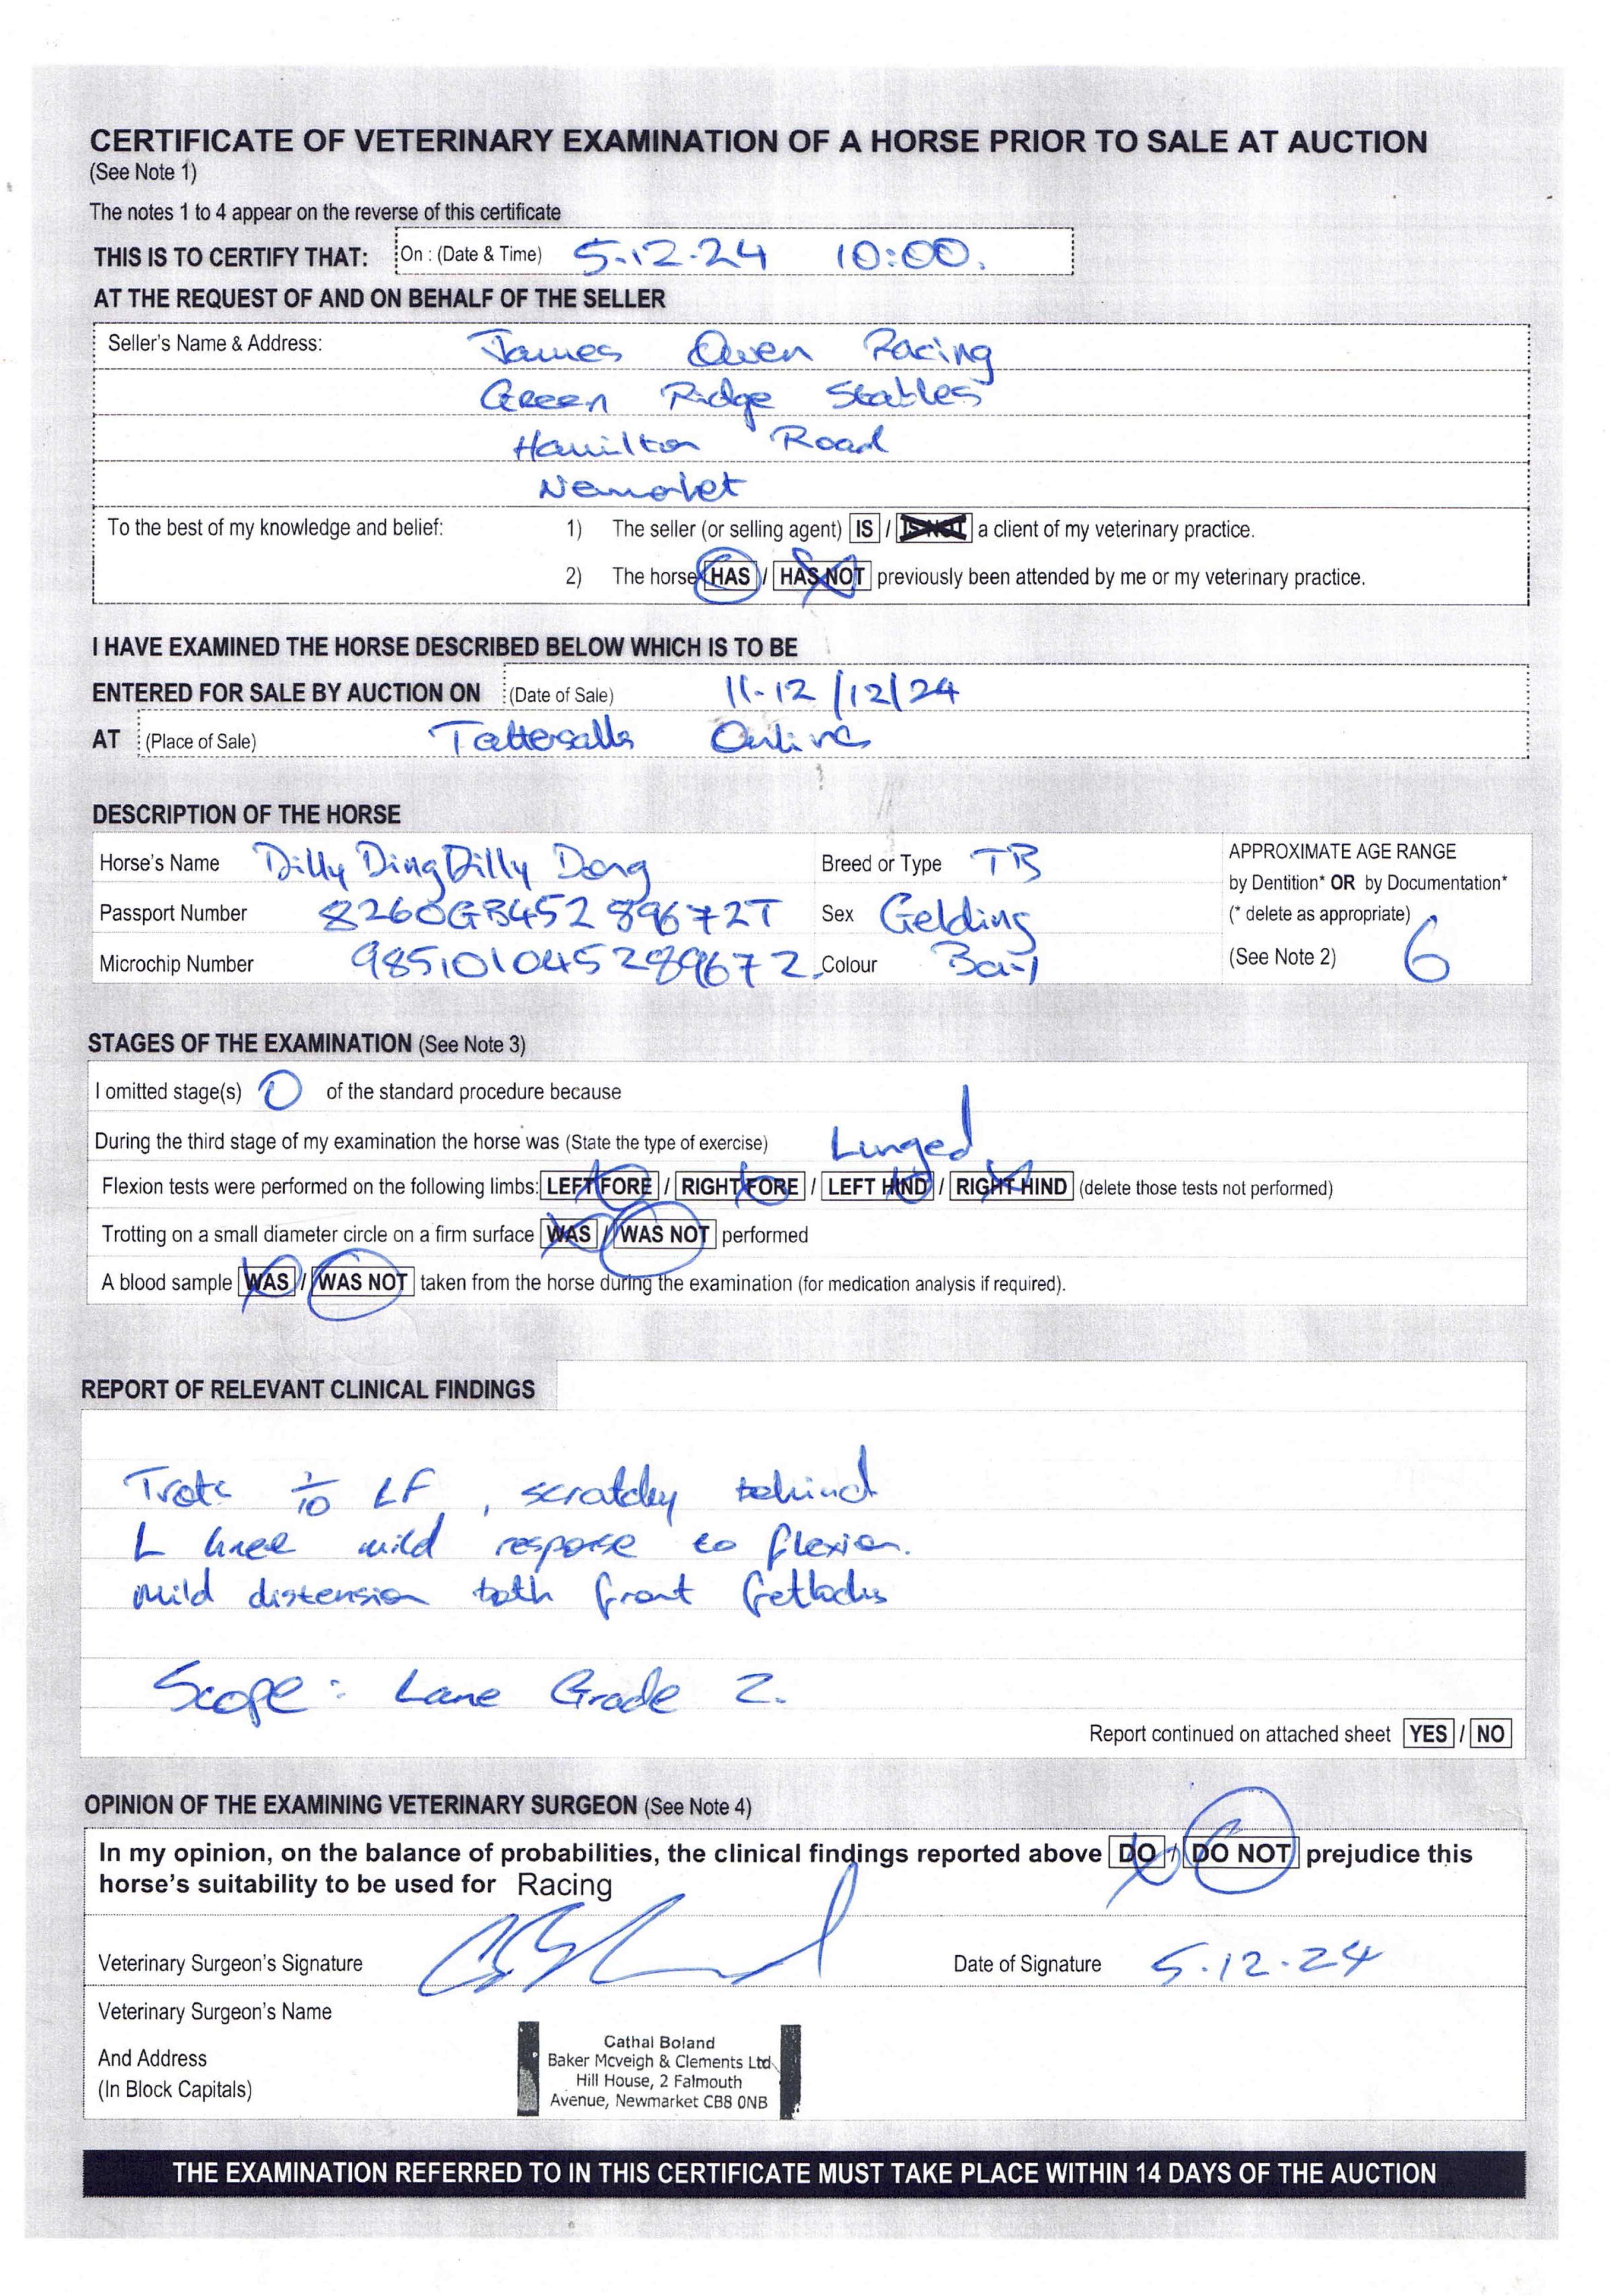 CERTIFICATE OF VETERINARY EXAMINATION OF A HORSE PRIOR TO SALE AT AUCTION
(See Note 1)
The notes 1 to 4 appear on the reverse of this certificate
THIS IS TO CERTIFY THAT: On : (Date & Time) 5.12.24 10:00.
AT THE REQUEST OF AND ON BEHALF OF THE SELLER
Seller's Name & Address: James Owen Racing
Green Ridge Stables
Hamilton Road
Newmarket
To the best of my knowledge and belief: 1) The seller (or selling agent) IS / IS NOT a client of my veterinary practice.
2) The horse HAS / HAS NOT previously been attended by me or my veterinary practice.
I HAVE EXAMINED THE HORSE DESCRIBED BELOW WHICH IS TO BE
ENTERED FOR SALE BY AUCTION ON (Date of Sale) 11-12/12/24
AT (Place of Sale) Tattersalls Online
DESCRIPTION OF THE HORSE
Horse's Name Dilly Ding Dilly Dong Breed or Type TB APPROXIMATE AGE RANGE
by Dentition* OR by Documentation*
Passport Number 8260GB45289672T Sex Gelding (* delete as appropriate)
Microchip Number 985101045289672 Colour Bay (See Note 2) 6
STAGES OF THE EXAMINATION (See Note 3)
I omitted stage(s) 0 of the standard procedure because
During the third stage of my examination the horse was (State the type of exercise) Lunged
Flexion tests were performed on the following limbs: LEFT FORE / RIGHT FORE / LEFT HIND / RIGHT HIND (delete those tests not performed)
Trotting on a small diameter circle on a firm surface WAS / WAS NOT performed
A blood sample WAS / WAS NOT taken from the horse during the examination (for medication analysis if required).
REPORT OF RELEVANT CLINICAL FINDINGS
Trots 1/10 LF, scratchy behind
L knee mild response to flexion.
Mild distension both front fetlocks
Scope: Lane Grade 2.
Report continued on attached sheet YES / NO
OPINION OF THE EXAMINING VETERINARY SURGEON (See Note 4)
In my opinion, on the balance of probabilities, the clinical findings reported above DO / DO NOT prejudice this
horse's suitability to be used for Racing
Veterinary Surgeon's Signature Date of Signature 5.12.24
Veterinary Surgeon's Name
And Address
(In Block Capitals)
Cathal Boland
Baker Mcveigh & Clements Ltd
Hill House, 2 Falmouth
Avenue, Newmarket CB8 0NB
THE EXAMINATION REFERRED TO IN THIS CERTIFICATE MUST TAKE PLACE WITHIN 14 DAYS OF THE AUCTION